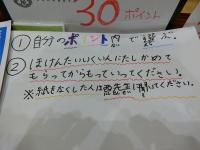 30 ポイント
① 自分のポイント内で選ぶ。
② ほけんたいいくいいんにたしかめて
もらってからもっていってください。
※紙をなくした人は先生に聞いてください。